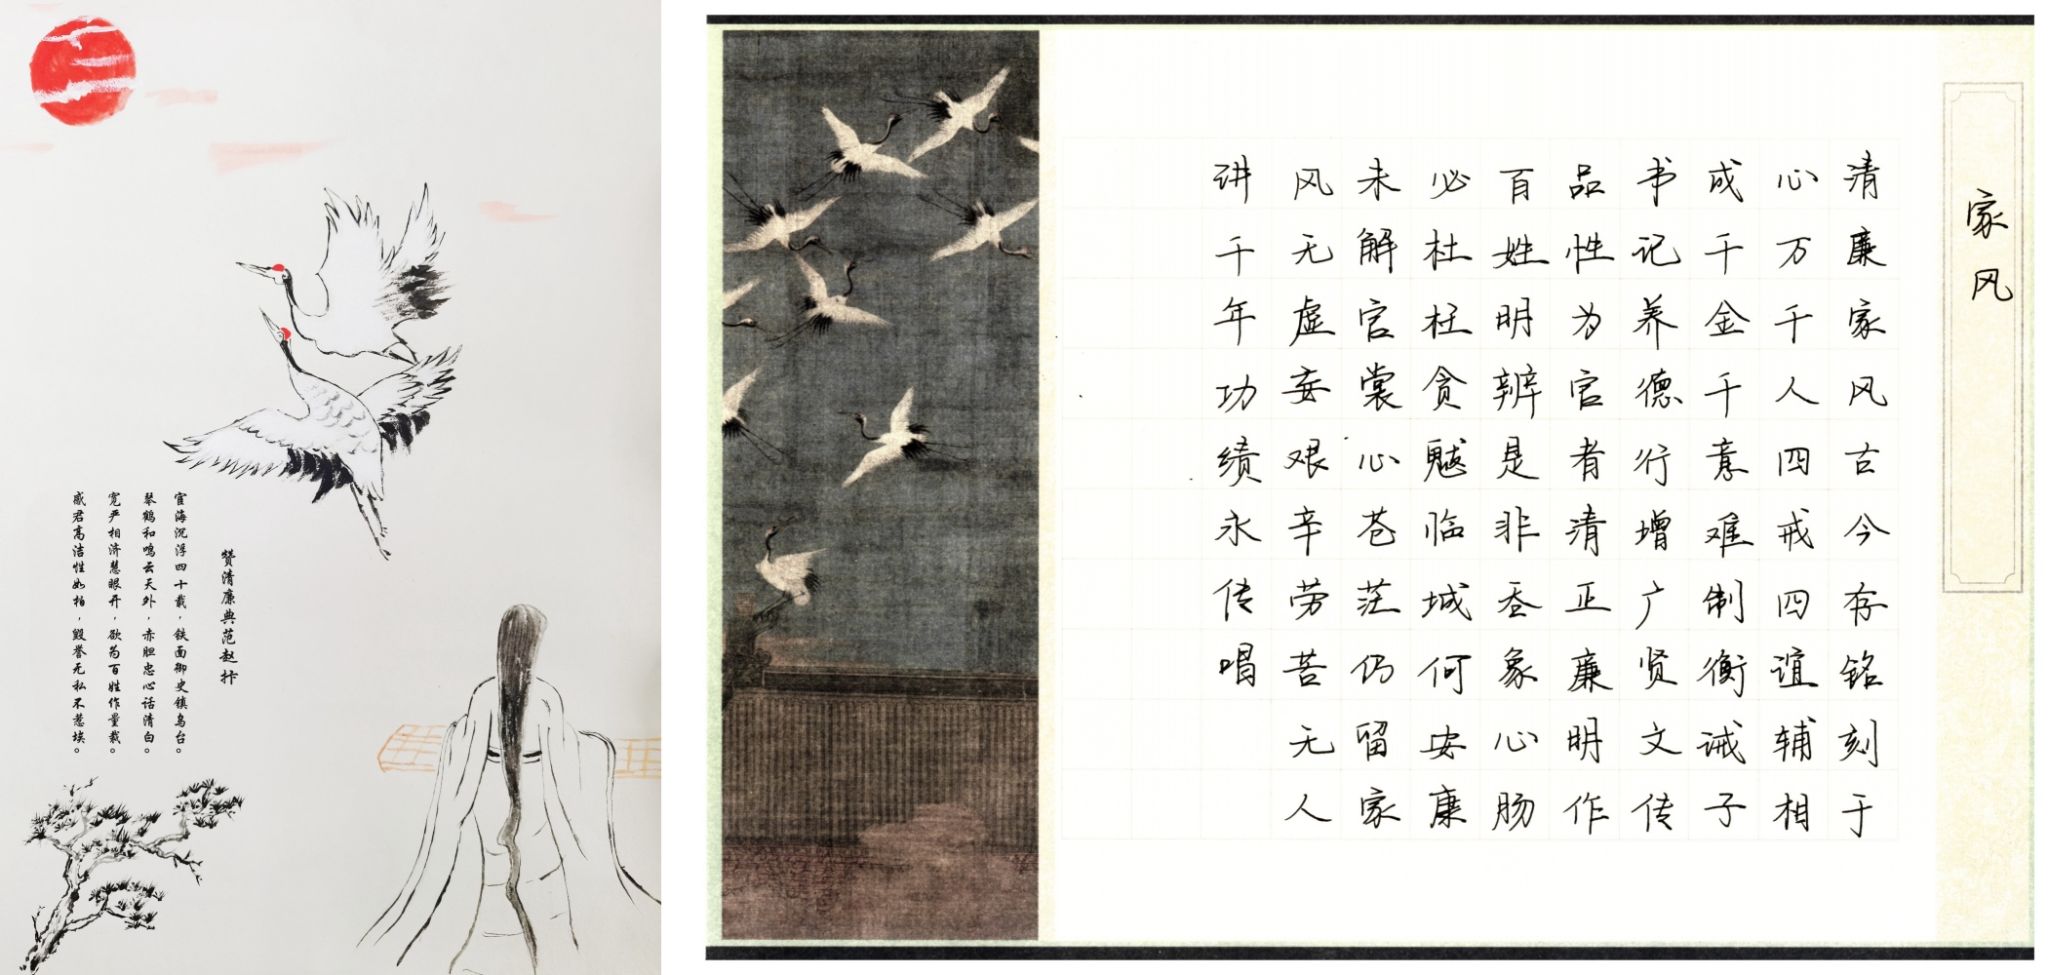 赞清廉典范赵抃
宦海沉浮四十载，铁面御史镇乌台。
琴鹤和鸣云天外，赤胆忠心话清白。
宽严相济慧眼开，欲为百姓作量裁。
感君高洁性如柏，毁誉无私不惹埃。
家风
清廉家风古今存铭刻于
心万千人四戒四谊辅相
成千金千意难制衡诫子
书记养德行增广贤文传
品性为官者清正廉明作
百姓明辨是非象心肠
必杜枉贪临城何安康
未解官裳心苍茫仍留家
风无虚妄艰辛劳苦无人
讲千年功绩永传唱